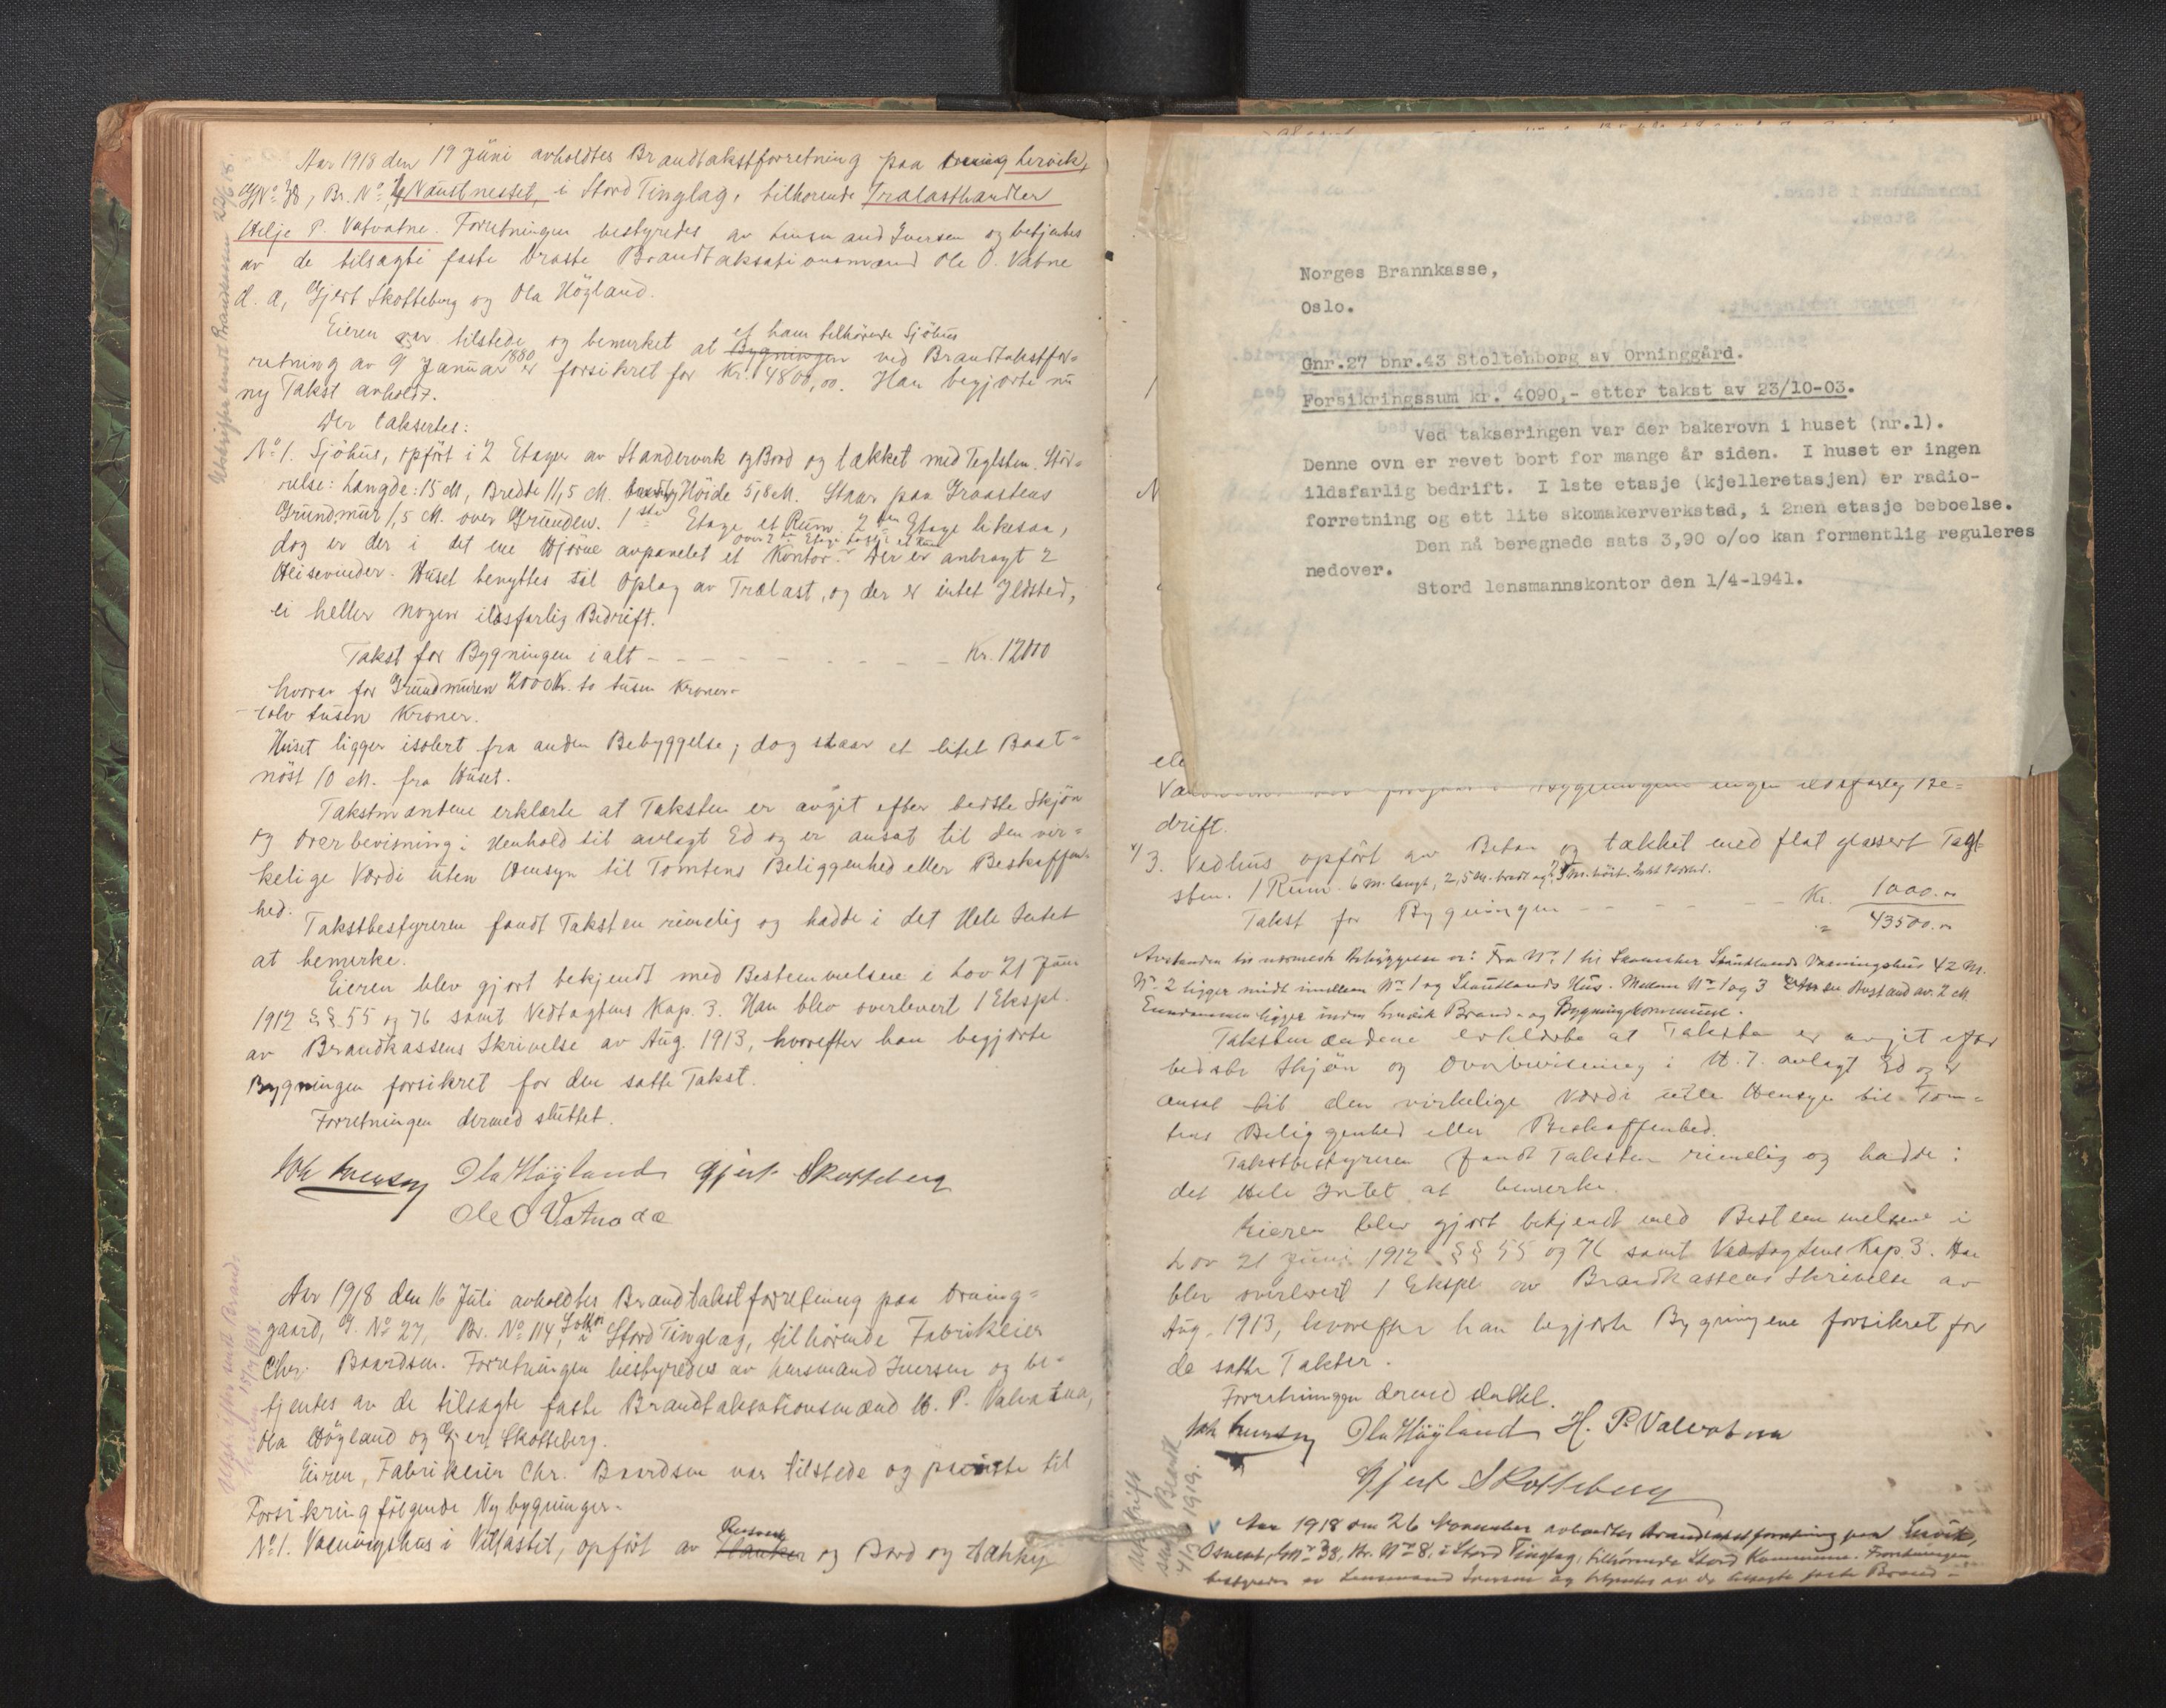 Aar 1918 den 19 Juni avholdtes Brandtakstforretning paa Lervik,
G. No 38, Br. No Naustneset, i Stord Tinglag, tilhørende Trælasthandler
Helje P. Vatvatne. Forretningen bestyredes av Lensmand Iversen og betjentes
av de tilsagte faste Brandtaksationsmænd Ole O. Vatne
d. æ, Gjert Skotteberg og Ola Høgland.
Eieren var tilstede og bemerket at et ham tilhørende Sjöhus ved Brandtakstfor-
retning av 9 Januar 1880 er forsikret for Kr. 4800,00. Han begjærte nu
ny Takst avholdt.
Der taksertes:
No 1. Sjöhus, opfört i 2 Etager av Standerverk og Bord og tækket med Teglsten. Stör-
relse: Længde: 15 M, Bredde 11,5 M. Höide 5,8 M. Staar paa Graastens
Grundmur 1,5 M. over Grunden. 1ste Etage et Rum. 2den Etage likesaa,
dog er der i det ene Hjörne avpanelet et Kontor. Der er anbragt 2
over 2den Etage
Heisevinder. Huset benyttes til Oplag av Trælast, og der er intet Ildsted,
ei heller nogen ildsfarlig Bedrift.
Takst for Bygningen ialt - - - - - - - - Kr. 12000
hvorav for Grundmuren 2000 Kr. to tusen Kroner.
tolv tusen Kroner.
Huset ligger isolert fra anden Bebyggelse, dog staar et litet Baat-
nöst 10 M. fra Huset.
Takstmændene erklærte at Taksten er avgit efter bedste Skjön
og Overbevisning i Henhold til avlagt Ed og er ansat til den vir-
kelige Værdi uten Hensyn til Tomtens Beliggenhed eller Beskaffen-
hed.
Takstbestyreren fandt Taksten rimelig og hadde i det Hele Intet
at bemerke.
Eieren blev gjort bekjendt med Bestemmelsene i Lov 21 Juni
1912 §§ 55 og 76 samt Vedtægtens Kap. 3. Han blev overlevert 1 Ekspl.
av Brandkassens Skrivelse av Aug. 1913, hvorefter han begjærte
Bygningen forsikret for den satte Takst.
Forretningen dermed sluttet.
Joh Iversen Ola Høgland Gjert Skotteberg
Ole O Vatna d æ
Aar 1918 den 16 Juli avholdtes Brandtakstforretning paa Orning-
gaard, G. No 27, Br. No 114, i Stord Tinglag, tilhörende Fabrikeier
Chr. Baardsen. Forretningen bestyredes av Lensmand Iversen og be-
tjentes av de tilsagte faste Brandtaksationsmænd H. P. Valvatna,
Ola Høgland og Gjert Skotteberg.
Eieren, Fabrikeier Chr. Baardsen var tilstede og paaviste til
Forsikring følgende Nybygninger.
No 1. Vaaningshus i Villastil, opfört av Planker og Bord og tækket
Norges Brannkasse,
Oslo.
Gnr.27 bnr.43 Stoltenborg av Orninggård.
Forsikringssum kr. 4090,- etter takst av 23/10-03.
Ved takseringen var der bakerovn i huset (nr.1).
Denne ovn er revet bort for mange år siden. I huset er ingen
ildsfarlig bedrift. I 1ste etasje (kjelleretasjen) er radio-
forretning og ett lite skomakerverksted, i 2nen etasje beboelse.
Den nå beregnede sats 3,90 o/oo kan formentlig reguleres
nedover.
Stord lensmannskontor den 1/4-1941.
Bygningen ingen ildsfarlig Be-
drift.
3. Vedhus opfört av Beton og tækket med flat glassert Tegl-
sten. 1 Rum. 6 M. langt, 2,5 M. bredt og
Takst for Bygningen - - - - - Kr. 1000.00
43500.00
Avstanden til nærmeste Bebyggelse er: Fra No 1 til Stautlands Vaaningshus 42 M.
No 2 ligger midt imellem No 1 og Stautlands Hus. Mellem No 1 og 3 er en Avstand av 2 M.
Eiendommen ligger inden Lervik Brand- og Bygningskommune.
Takstmændene erklærte at Taksten er avgit efter
bedste Skjön og Overbevisning i H. t. avlagt Ed og er
ansat til den virkelige Værdi uten Hensyn til Tom-
tens Beliggenhed eller Beskaffenhed.
Takstbestyreren fandt Taksten rimelig og hadde i
det Hele Intet at bemerke.
Eieren blev gjort bekjendt med Bestemmelsene i
Lov 21 Juni 1912 §§ 55 og 76 samt Vedtægtene Kap. 3. Han
blev overlevert 1 Ekspl av Brandkassens Skrivelse av
Aug. 1913, hvorefter han begjærte Bygningene forsikret for
de satte Takster.
Forretningen dermed sluttet.
Joh Iversen Ola Høgland H. P. Valvatna
Gjert Skotteberg
Aar 1918 den 26 November avholdtes Brandtakstforretning paa Lervik,
Osneset, G. No 38, Br. No 8, i Stord Tinglag, tilhørende Stord Kommune. Forretningen
bestyredes av Lensmand Iversen og betjentes av de tilsagte faste Brand-